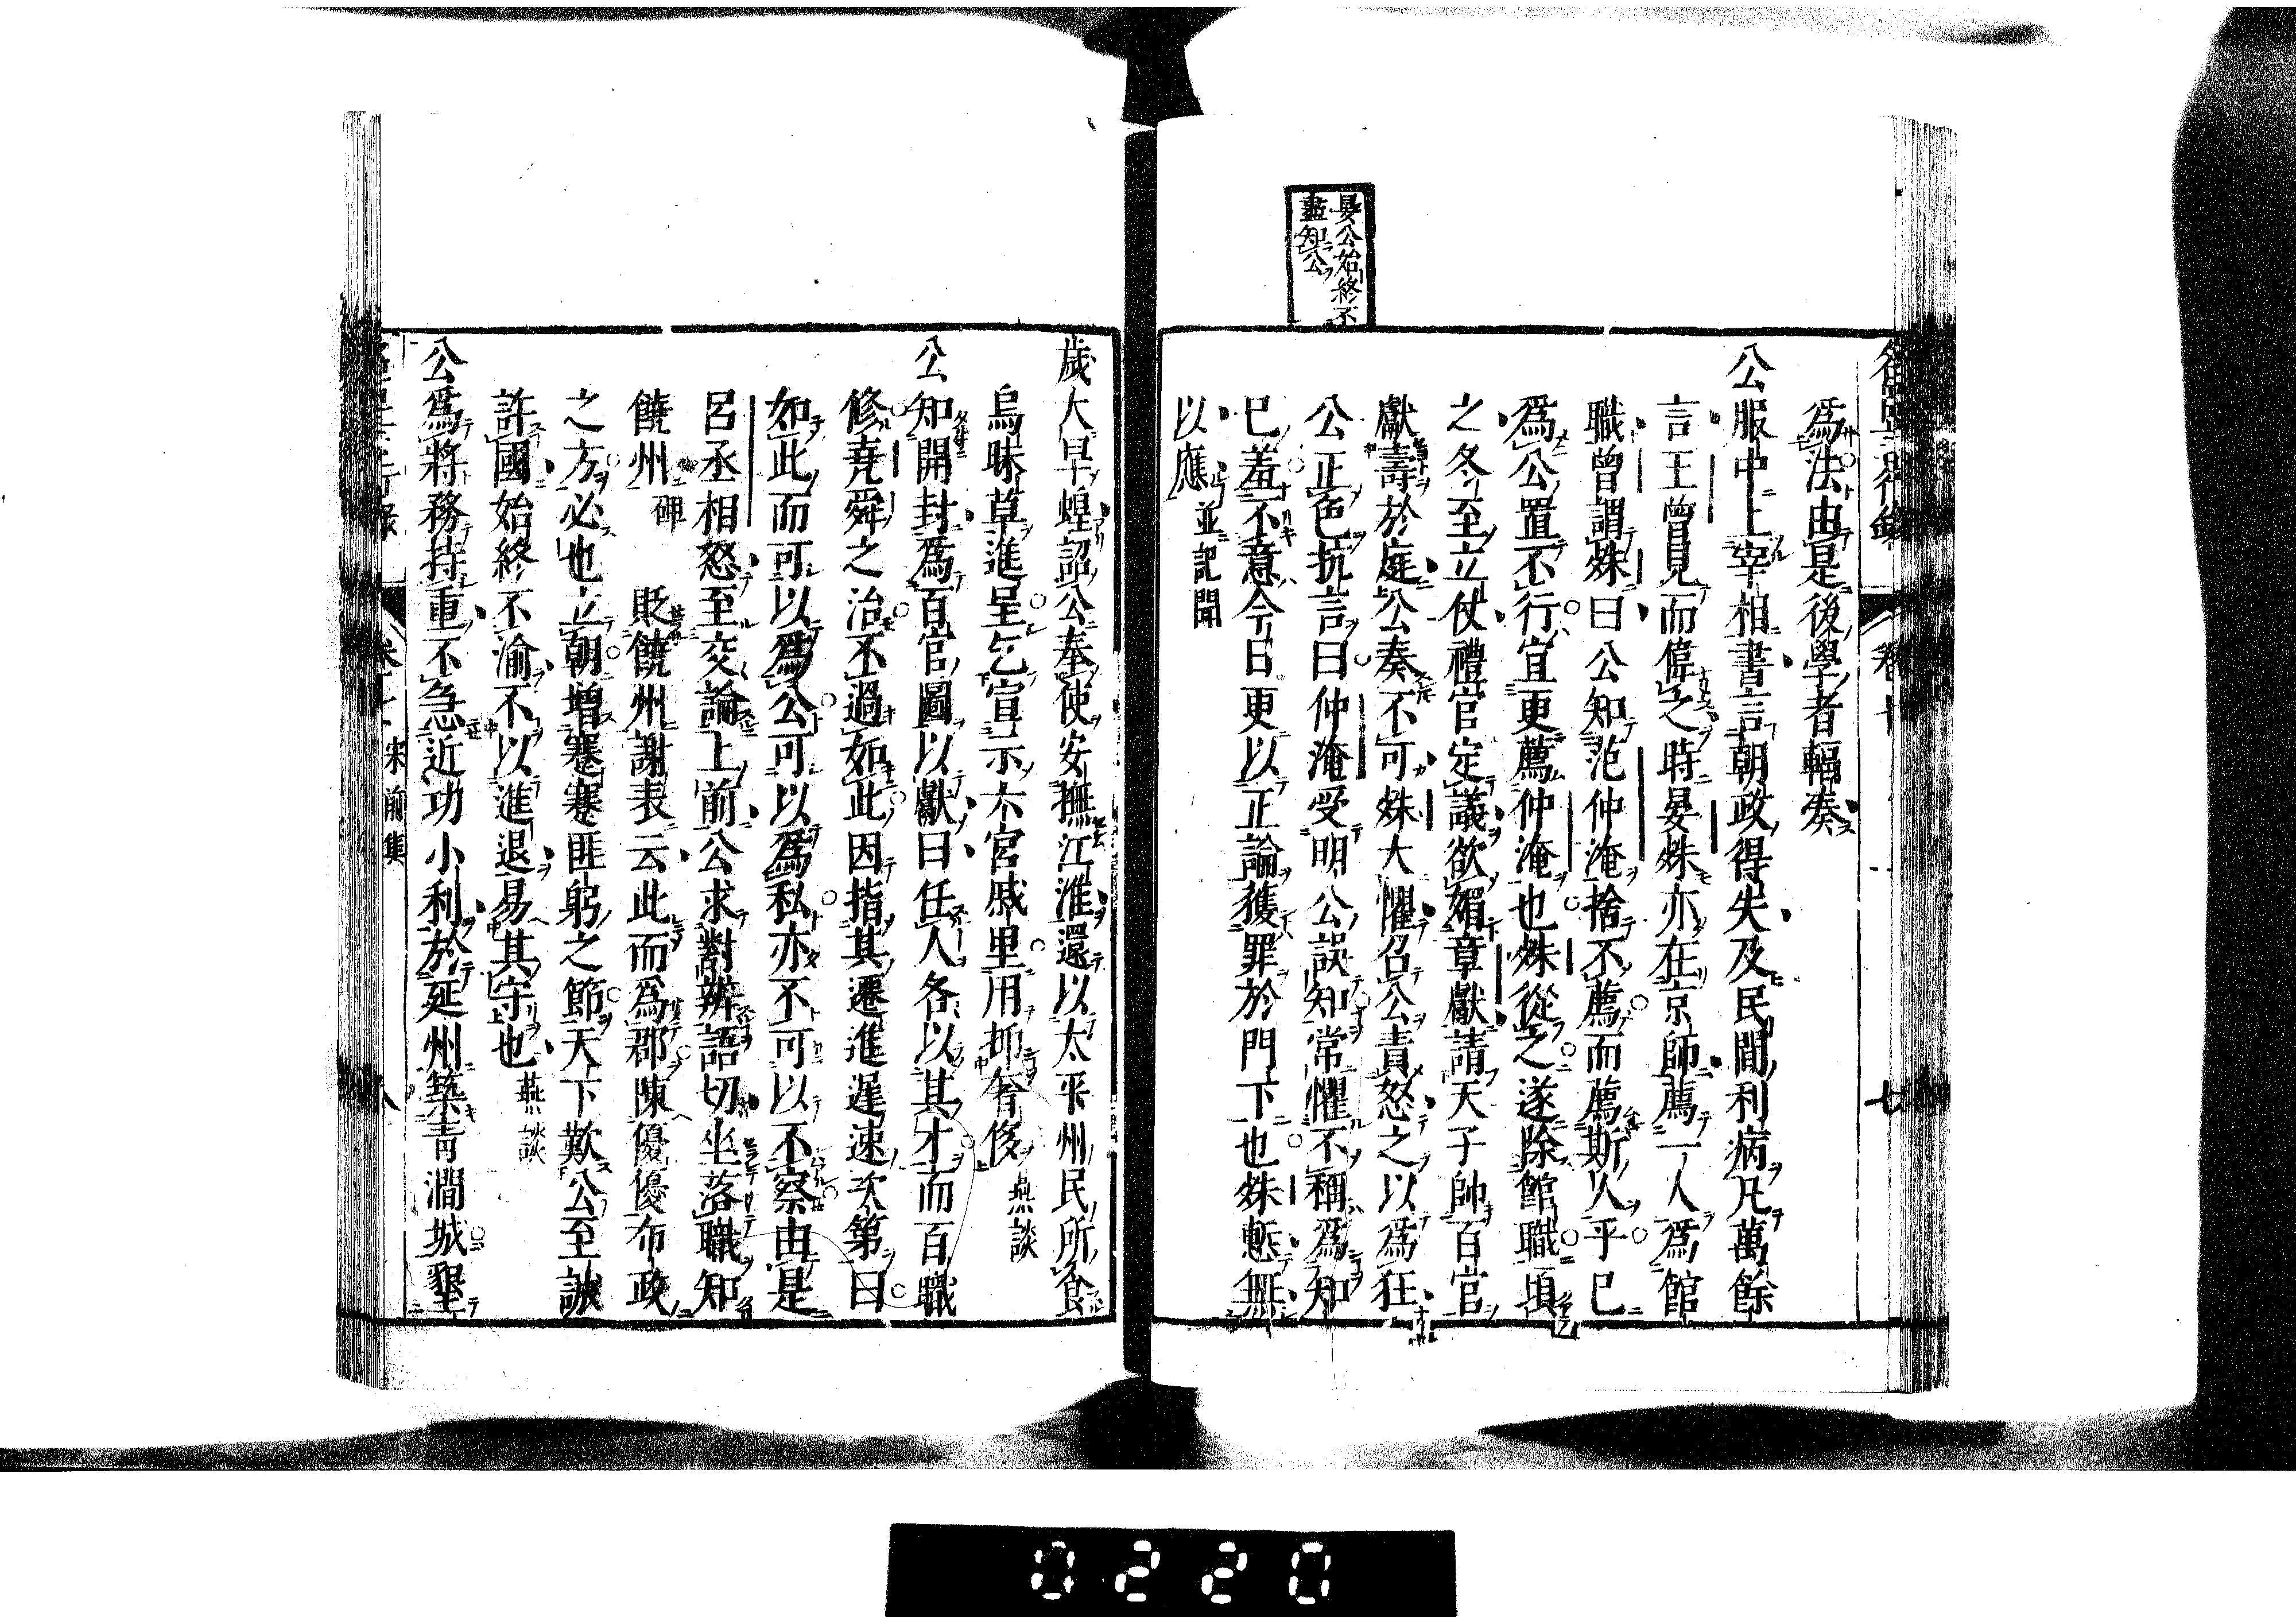 晏公始終不
盡知公
爲法由是後學者輻奏
公服中上宰相書言朝政得失及民間利病凡萬餘
言王曾見而偉之時晏殊亦在京師薦一人爲館
職曾謂殊曰公知范仲淹捨不薦而薦斯人乎已
爲公置不行宜更薦仲淹也殊從之遂除館職頃
之冬至立仗禮官定議欲媚章獻請天子帥百官
獻壽於庭公奏不可殊大懼召公責怒之以爲狂
公正色抗言曰仲淹受明公誤知常懼不稱爲知
已羞不意今日更以正論獲罪於門下也殊慙無
以應 並記聞
卷七
七
歲大旱蝗詔公奉使安撫江淮還以太平州民所食
烏昧草進呈乞宣示六宮戚里用抑奢侈 燕談
公知開封爲百官圖以獻曰任人各以其才而百職
修堯舜之治不過如此因指其遷進遲速次第曰
如此而可以爲公可以爲私亦不可以不察由是
呂丞相怒至交論上前公求對辨語切坐落職知
饒州 碑 貶饒州謝表云此而爲郡陳優優布政
之方必也立朝增蹇蹇匪躬之節天下歎公至誠
許國始終不渝不以進退易其守也 燕談
公爲將務持重不急近功小利於延州築青澗城墾
宋前集
八
0220